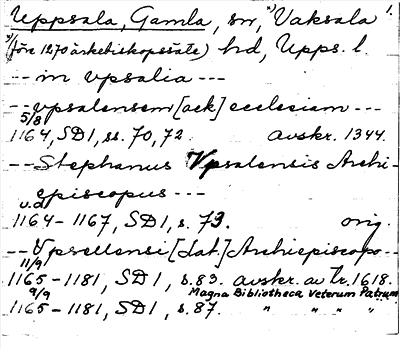 Uppsala, Gamla, sn, ⁾ Vaksala 1.
⁾(före 1270 ärkebiskopssäte) hd, Upps. l.
-- in vpsalia ---
-- vpsalensem [ack] ecclesiam ---
5/8
1164, SD1, ss. 70, 72. avskr. 1344.
-- Stephanus Vpsalensis Archi-
episcopus ---
u.d
1164-1167, SD1, s. 73. orig.
-- Vpsellensi [dat.] Archiepiscopo --
11/9
1165-1181, SD1, s. 83. avskr. av tr. 1618.
9/9 Magna Bibliotheca Veterum Patrum
1165-1181, SD1, s. 87. " " " "